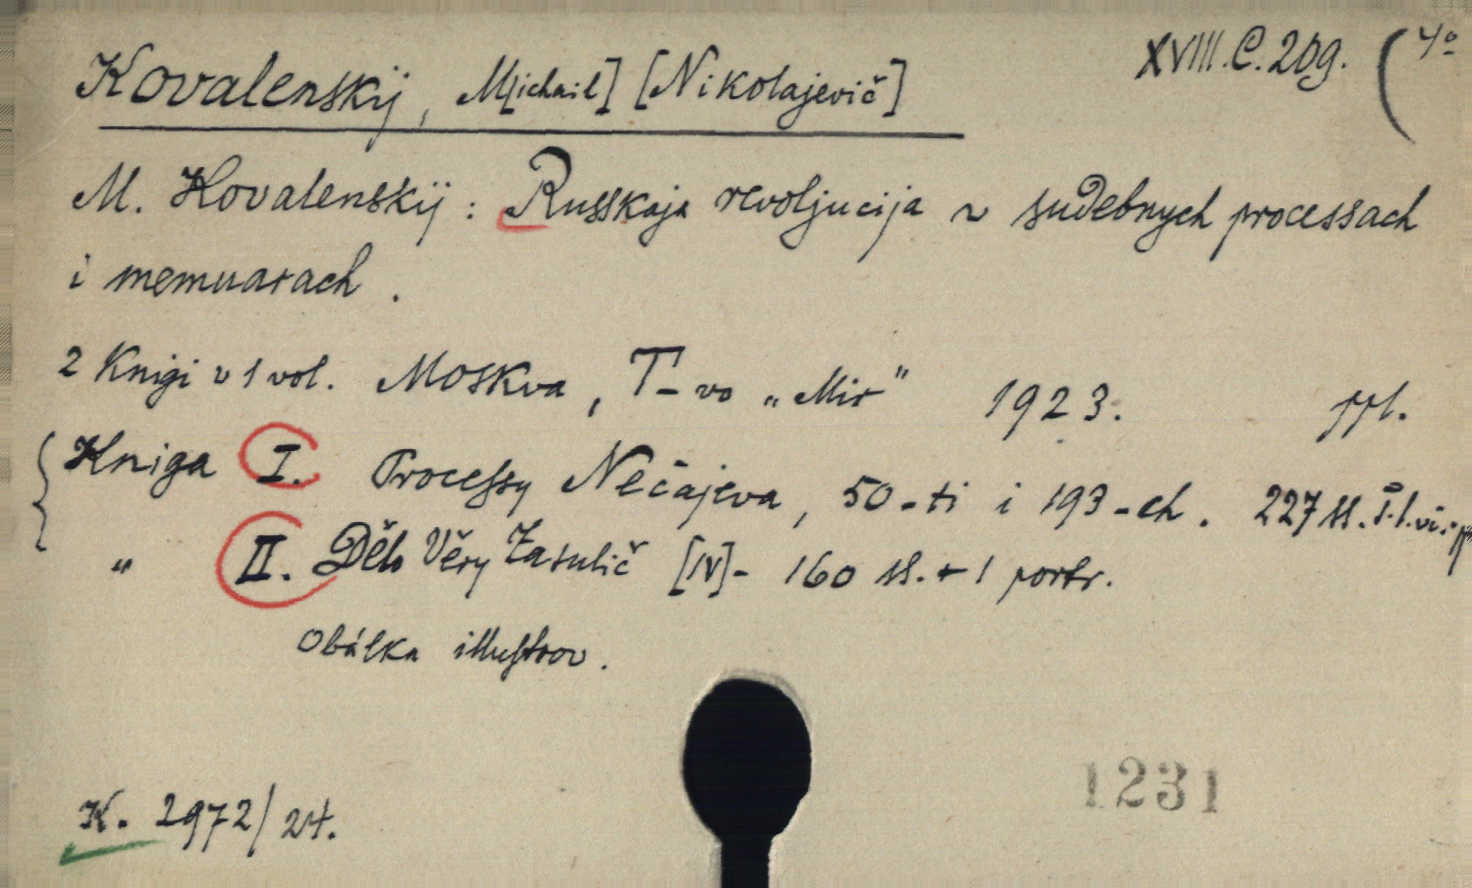 XVIII.C.209. (4°
Kovalenskij, M[ichail] [Nikolajevič]
M. Kovalenskij : Russkaja revoljucija v sudebnych processach
i memuarach .
2 Knigi v 1 vol. Moskva, T-vo „Mir" 1923. ppl.
Kniga I. Processy Nečajeva, 50-ti i 193-ch. 227 ss.
„ II. Dělo Věry Zasulič [IV] - 160 ss. + 1 portr.
Obálka illustrov.
K. 2972/24.
1231